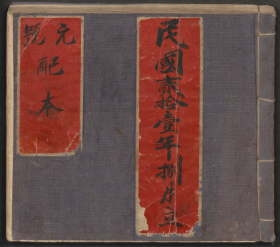 民國貳拾壹年捌月立
元配
號本